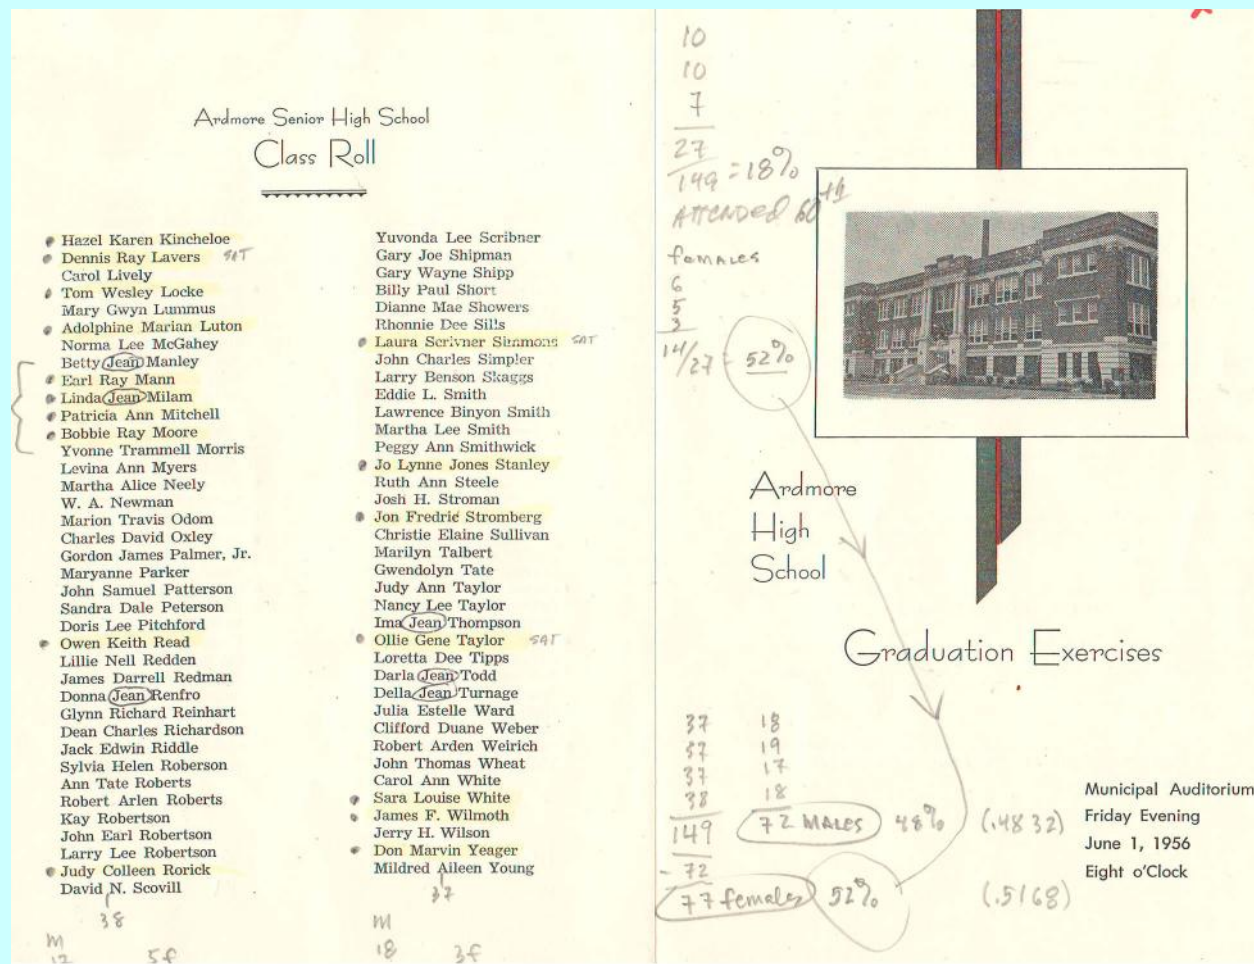 Ardmore Senior High School
Class Roll
Hazel Karen Kincheloe
Dennis Ray Lavers SAT
Carol Lively
Tom Wesley Locke
Mary Gwyn Lummus
Adolphine Marian Luton
Norma Lee McGahey
Betty Jean Manley
Earl Ray Mann
Linda Jean Milam
Patricia Ann Mitchell
Bobbie Ray Moore
Yvonne Trammell Morris
Levina Ann Myers
Martha Alice Neely
W. A. Newman
Marion Travis Odom
Charles David Oxley
Gordon James Palmer, Jr.
Maryanne Parker
John Samuel Patterson
Sandra Dale Peterson
Doris Lee Pitchford
Owen Keith Read
Lillie Nell Redden
James Darrell Redman
Donna Jean Renfro
Glynn Richard Reinhart
Dean Charles Richardson
Jack Edwin Riddle
Sylvia Helen Roberson
Ann Tate Roberts
Robert Arlen Roberts
Kay Robertson
John Earl Robertson
Larry Lee Robertson
Judy Colleen Rorick
David N. Scovill
38
M
17 5f
Yuvonda Lee Scribner
Gary Joe Shipman
Gary Wayne Shipp
Billy Paul Short
Dianne Mae Showers
Rhonnie Dee Sills
Laura Scrivner Simmons SAT
John Charles Simpler
Larry Benson Skaggs
Eddie L. Smith
Lawrence Binyon Smith
Martha Lee Smith
Peggy Ann Smithwick
Jo Lynne Jones Stanley
Ruth Ann Steele
Josh H. Stroman
Jon Fredric Stromberg
Christie Elaine Sullivan
Marilyn Talbert
Gwendolyn Tate
Judy Ann Taylor
Nancy Lee Taylor
Ima Jean Thompson
Ollie Gene Taylor SAT
Loretta Dee Tipps
Darla Jean Todd
Della Jean Turnage
Julia Estelle Ward
Clifford Duane Weber
Robert Arden Weirich
John Thomas Wheat
Carol Ann White
Sara Louise White
James F. Wilmoth
Jerry H. Wilson
Don Marvin Yeager
Mildred Aileen Young
37
M
18 3f
10
10
7
27
149 = 18%
Attended 60th
females
6
5
3
14/27 = 52%
Ardmore
High
School
Graduation Exercises
37 18
37 19
37 17
38 18
149 72 MALES 48% (.4832)
- 72
77 females 52% (.5168)
Municipal Auditorium
Friday Evening
June 1, 1956
Eight o'Clock